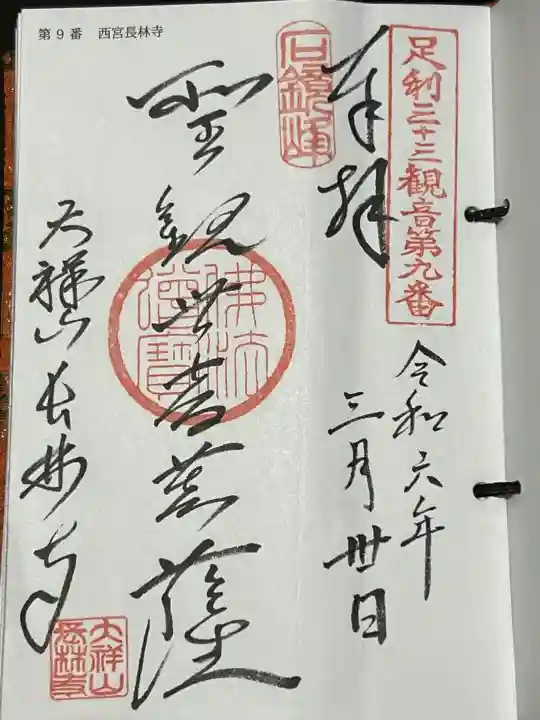 第９番　西宮長林寺
足利三十三観音第九番
奉拝
令和六年
三月卅日
聖観世音菩薩
佛法僧寶
大祥山長林寺
大祥山長林寺